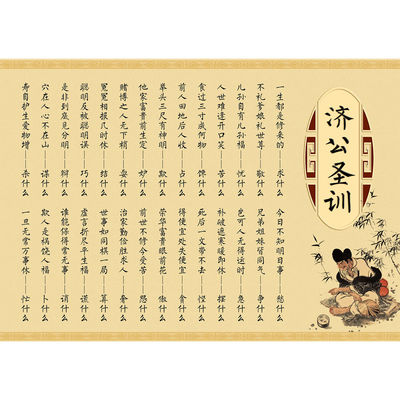 济公圣训
一生都是修来的——求什么 今日不知明日事——愁什么
不礼爹娘礼世尊——敬什么 兄弟姐妹皆同气——争什么
儿孙自有儿孙福——忧什么 岂可人无得运时——急什么
人世难逢开口笑——苦什么 补破遮寒暖即休——摆什么
食过三寸成何物——馋什么 死后一文带不去——悭什么
前人田地后人收——占什么 得便宜处失便宜——贪什么
举头三尺有神明——欺什么 荣华富贵眼前花——傲什么
他家富贵前生定——妒什么 前世不修今受苦——怨什么
赌博之人无下稍——耍什么 治家勤俭胜求人——奢什么
冤冤相报几时休——结什么 世事如同棋一局——算什么
聪明反被聪明误——巧什么 虚言折尽平生福——谎什么
是非到底见分明——辩什么 谁能保得常无事——诮什么
穴在人心不在山——谋什么 欺人是祸饶人福——卜什么
寿自护生爱物增——杀什么 一旦无常万事休——忙什么